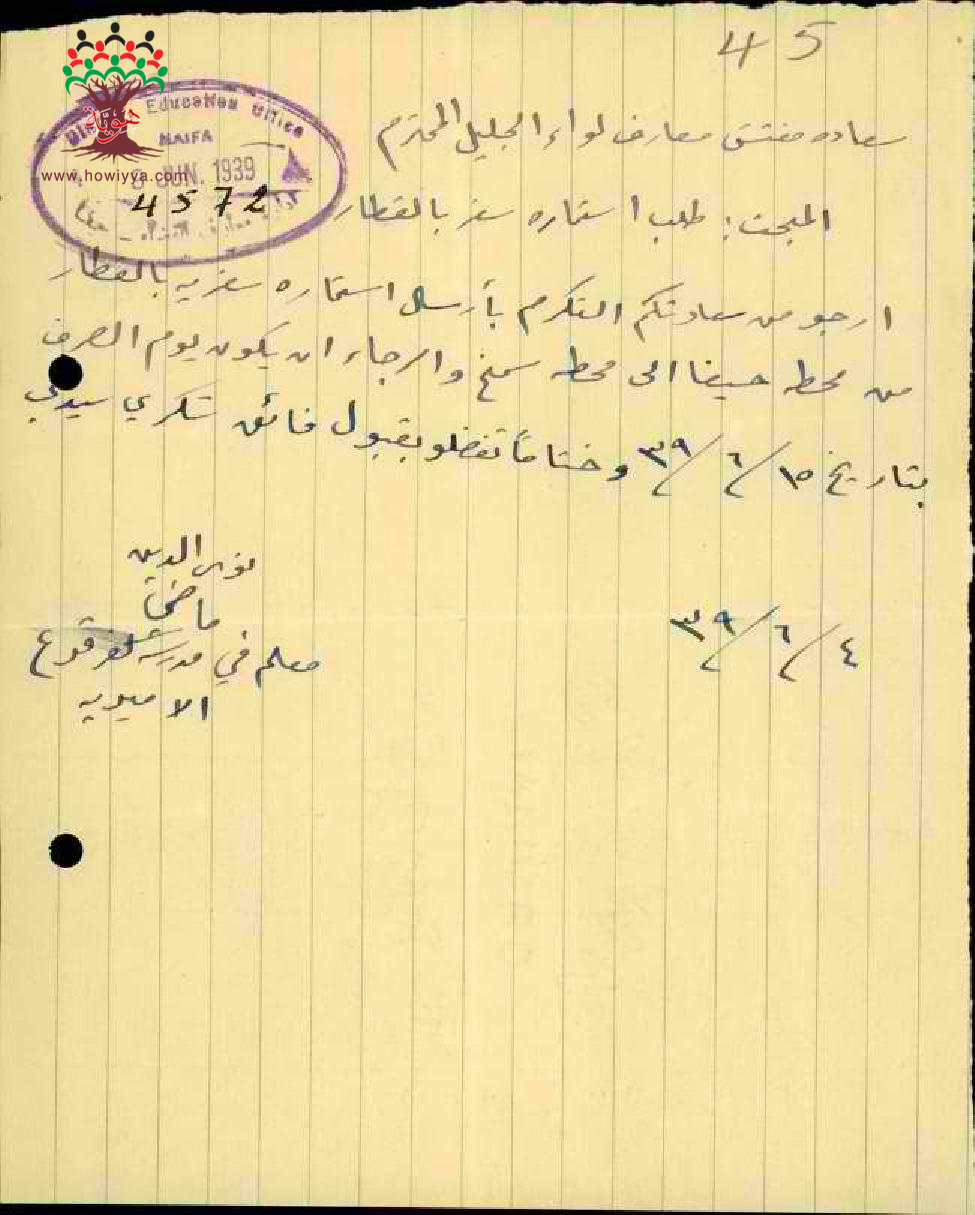 45
هوية
www.howiyya.com
District Education Office
HAIFA
5 JUN. 1939
4572
سعاده مفتش معارف لواء الجليل المحترم
المبحث: طلب استماره سفر بالقطار
ارجو من سعادتكم التكرم بأرسال استماره سفريه بالقطار
من محطه حيفا الى محطه سمخ والرجاء ان يكون يوم الصرف
بتاريخ ١٥/٦/٣٩ وختاماً تفضلو بقبول فائق شكري سيدي
الدين
ماضي
معلم في مدرسة كفر قرع
الاميريه
٤/٦/٣٩